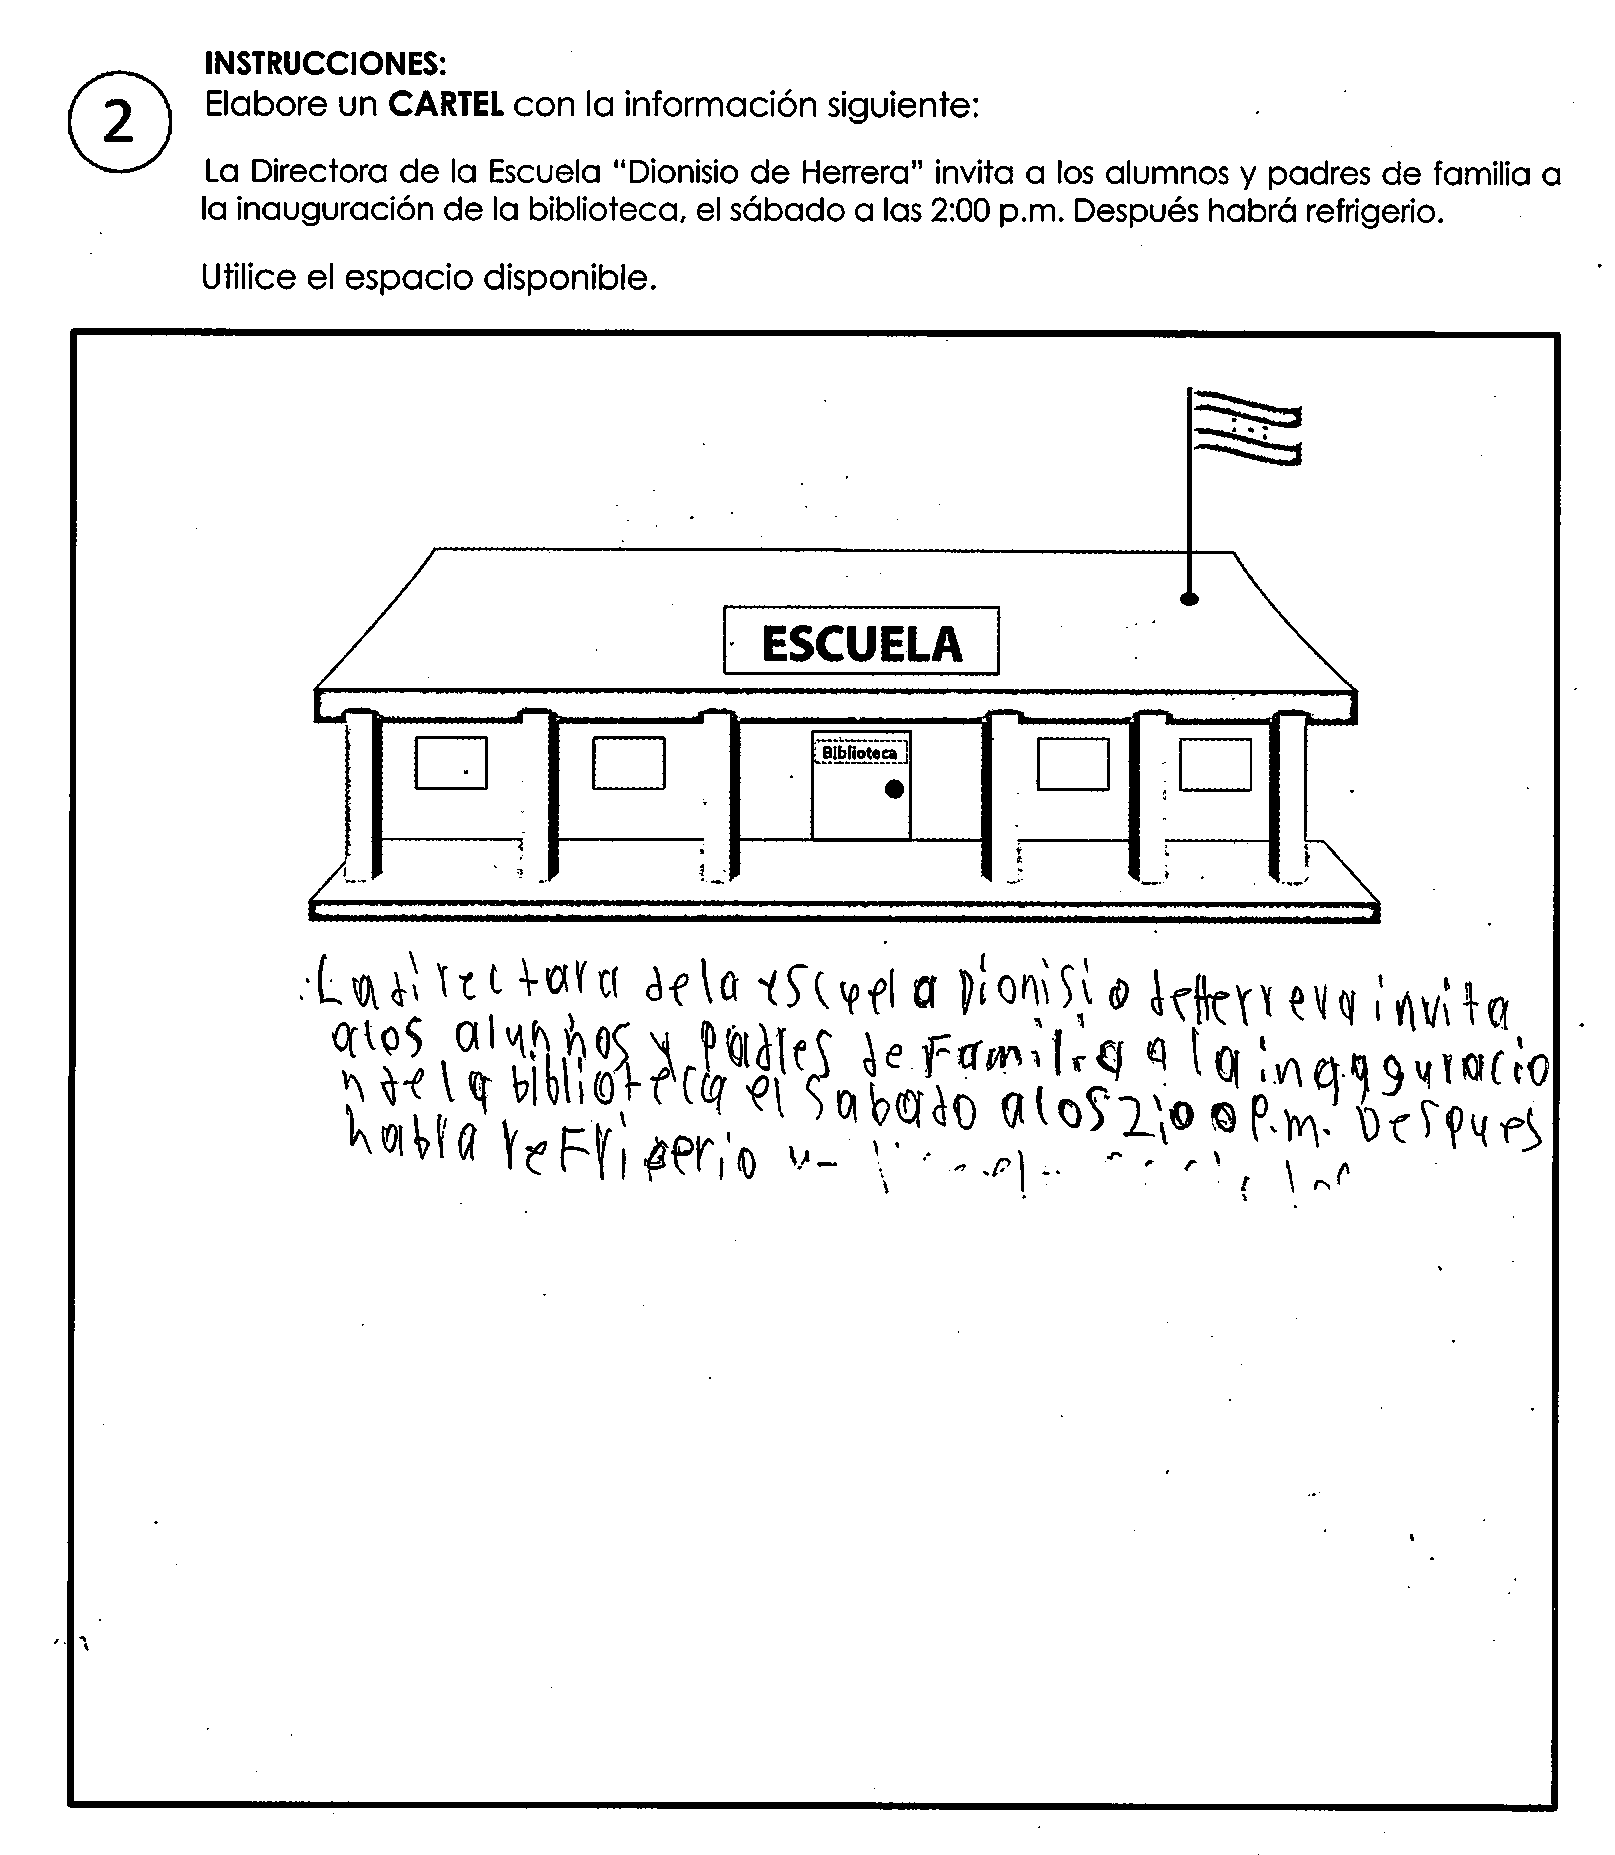 INSTRUCCIONES:
2
Elabore un CARTEL con la información siguiente:
La Directora de la Escuela "Dionisio de Herrera" invita a los alumnos y padres de familia a
la inauguración de la biblioteca, el sábado a las 2:00 p.m. Después habrá refrigerio.
Utilice el espacio disponible.
ESCUELA
Biblioteca
La directara de la escuela Dionisio de Herrera invita
a los alunnos y padres de Familia a la inaaguracio
n de la biblioteca el sabado a los 2:00 P.m. Despues
habra reFrigerio